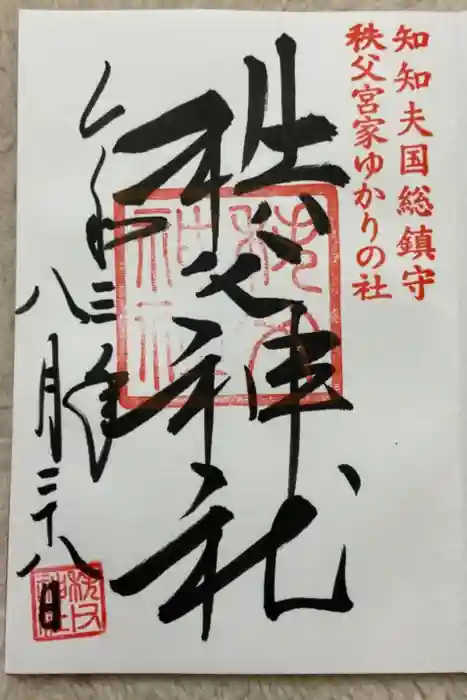 知知夫国総鎮守
秩父宮家ゆかりの社
秩父神社
令和三年
八月二十八日
秩父神社